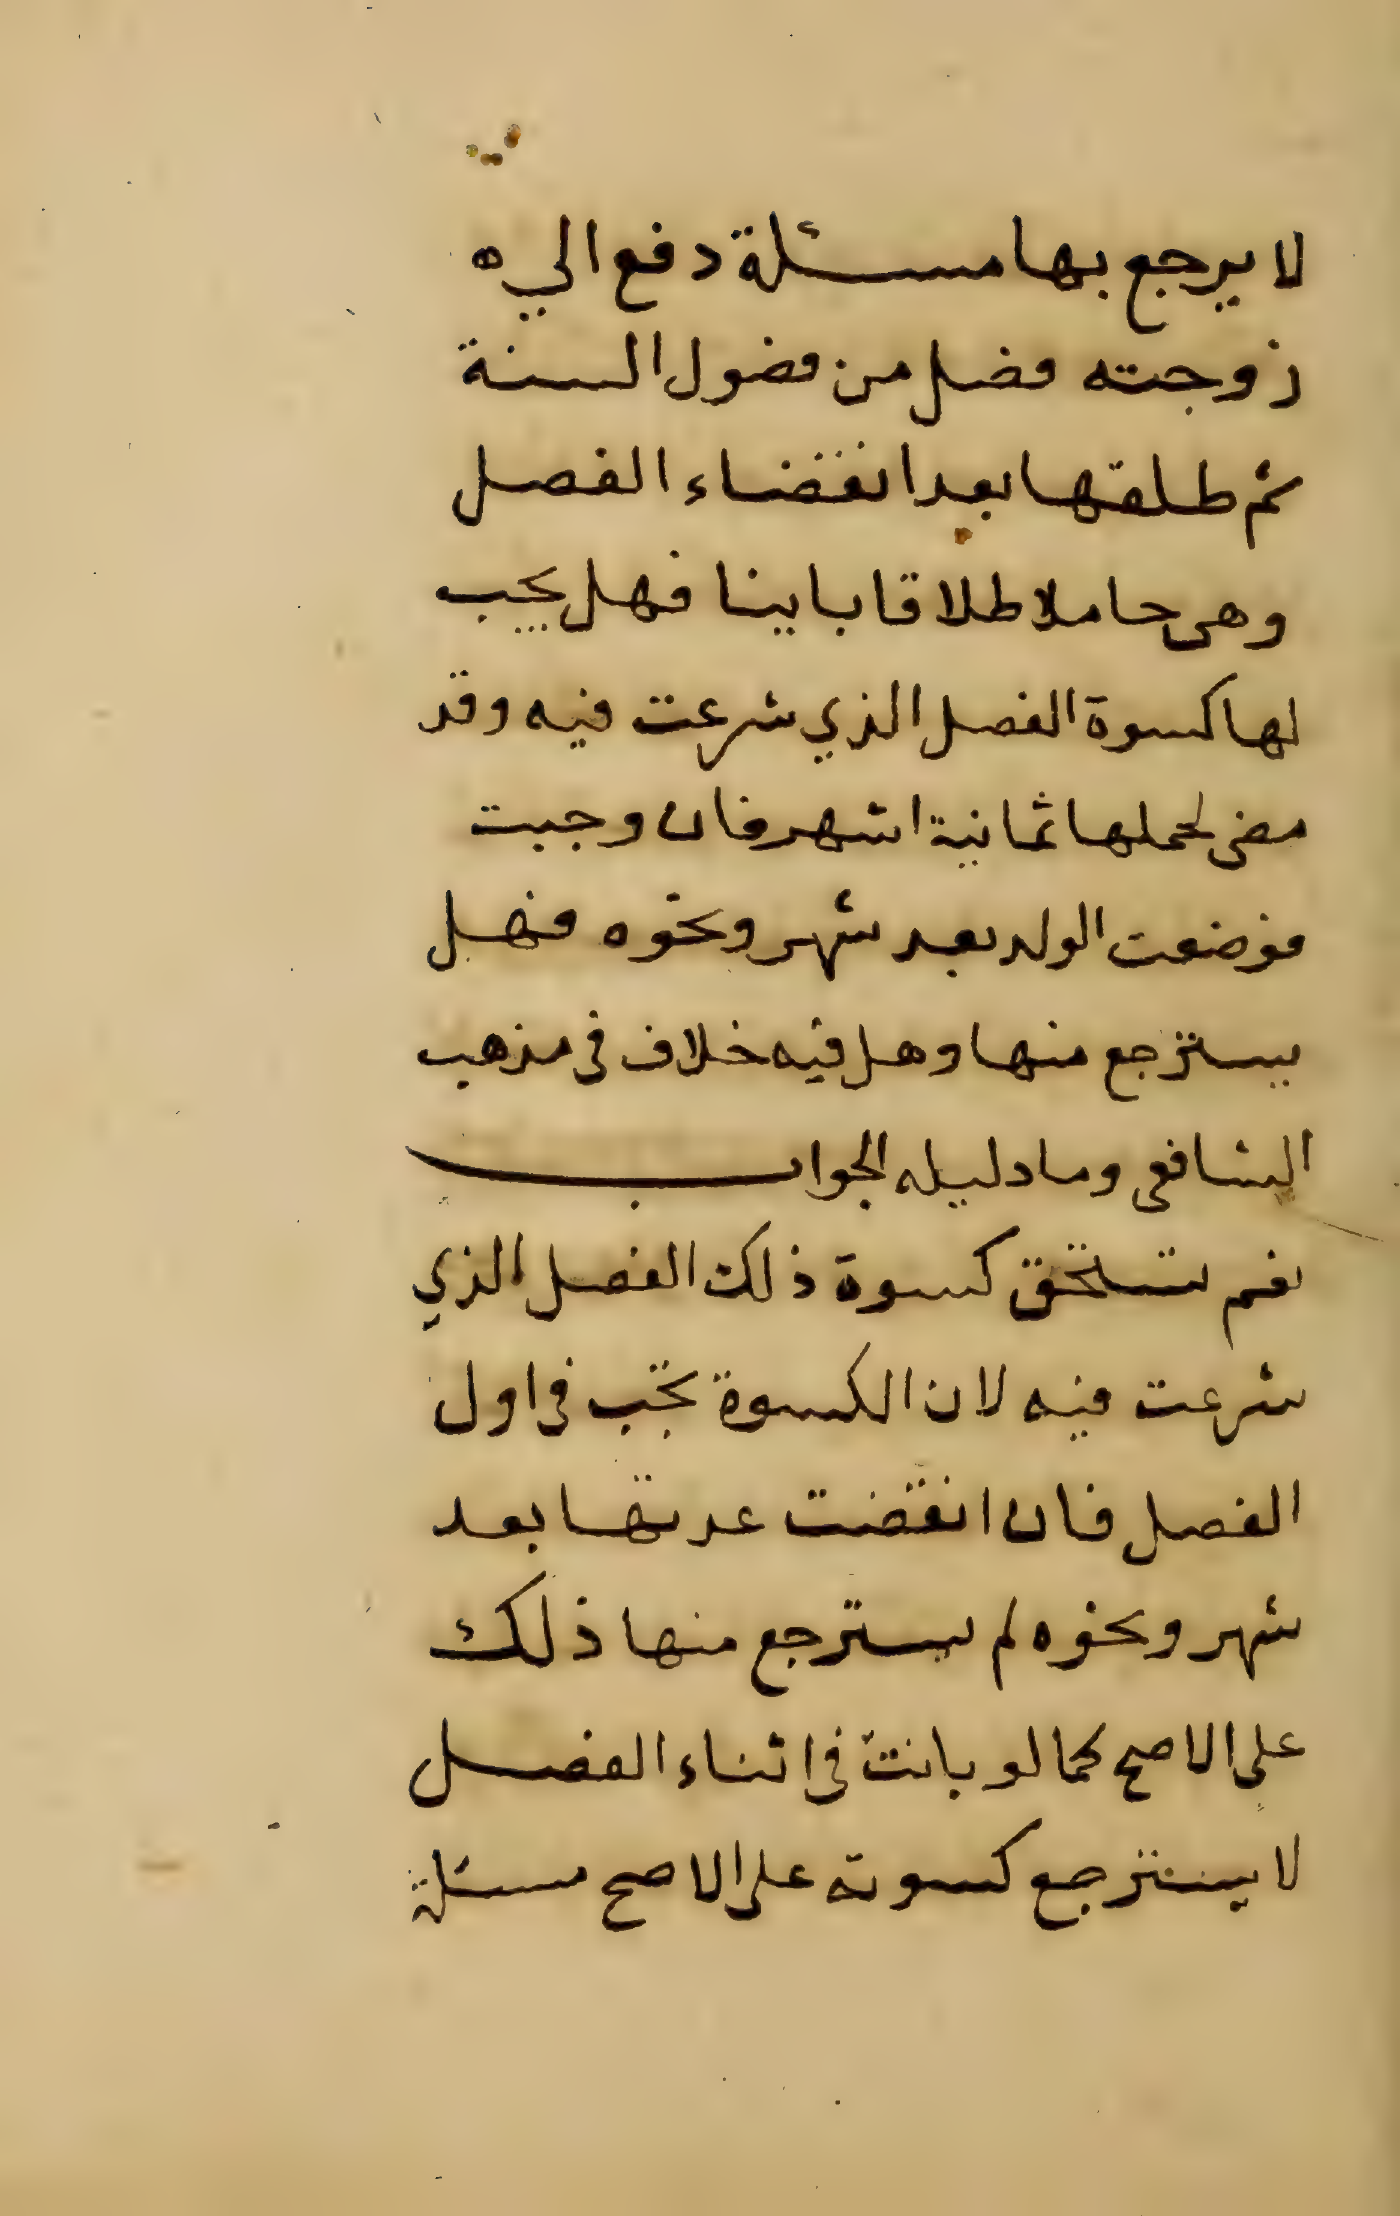 لا يرجع بها مسئلة دفع الي ه
زوجته فضل من فضول السنة
ثم طلقها بعد انقضاء الفصل
وهى حاملا طلاقا باينا فهل يجب
لها كسوة الفصل الذي شرعت فيه وقد
مضى لحملها ثمانية اشهر فان وجبت
فوضعت الولد بعد شهر ونحوه فهل
يسترجع منها وهل فيه خلاف فى مذهب
الشافعى وما دليله الجواب
نعم تستحق كسوة ذلك الفصل الذي
شرعت فيه لان الكسوة تجب فى اول
الفصل فان انقضت عدتها بعد
شهر ونحوه لم يسترجع منها ذلك
على الاصح كما لو بانت فى اثناء الفصل
لا يسترجع كسوته على الاصح مسئلة